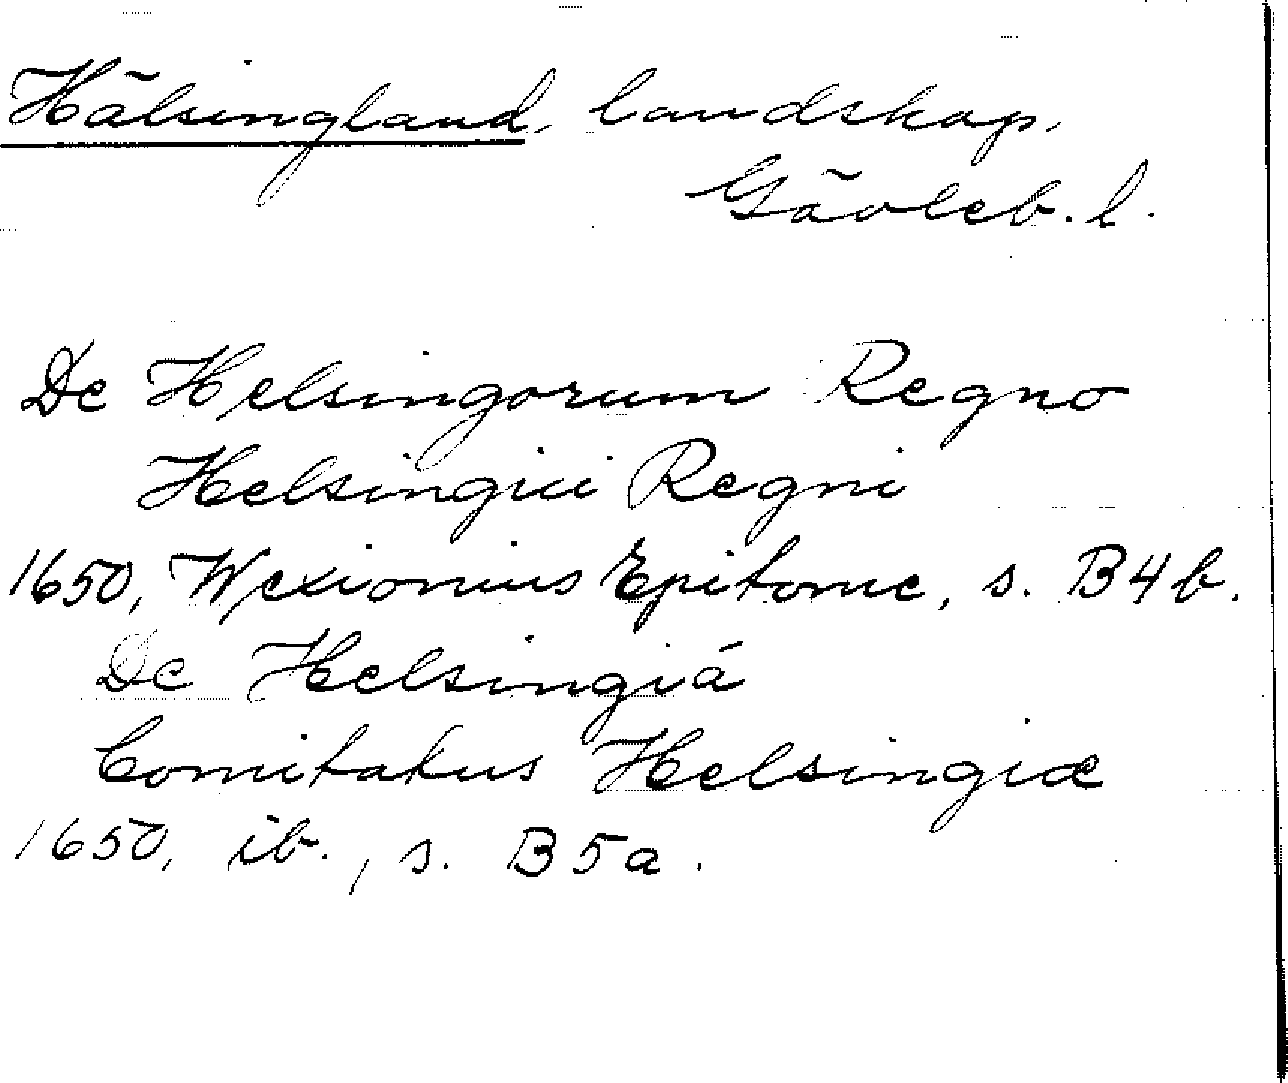 Hälsingland, landskap,
Gävleb. l.
De Helsingorum Regno
Helsingici Regni
1650, Wexionius Epitome, s. B4b.
De Helsingiá
Comitatus Helsingiæ
1650, ib., s. B5a.